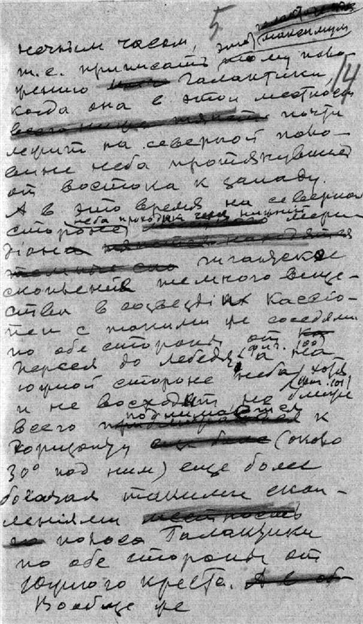 5
ночным часом, это максимум
т.е. приписать тому поло-
жению Галактики, 14
когда она в этой местности
почти
лежит на северной поло-
вине неба протянувшись
от востока к западу.
А в это время на северной
стороне неба проходят через нижний мери-
диан гигантские
скопления темного веще-
ства в созвездиях Кассио-
пеи с такими же соседями
по обе стороны от
Персея до Лебедя (фиг. 100) а на
южной стороне неба, хотя
и не восходит, но ближе (фиг. 101)
всего поднимается к
горизонту (около
30° под ним) еще более
богатая такими скоп-
лениями
полоса Галактики
по обе стороны от
Южного креста.
Вообще же